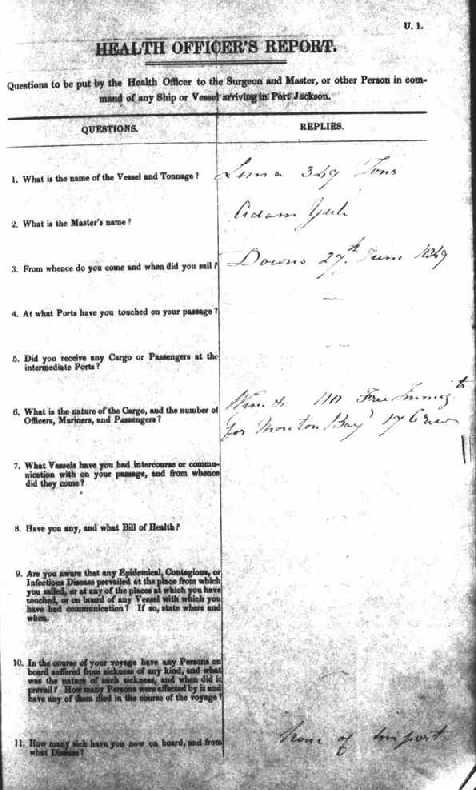 U. 1.
HEALTH OFFICER'S REPORT.
Questions to be put by the Health Officer to the Surgeon and Master, or other Person in com-
mand of any Ship or Vessel arriving in Port Jackson.
QUESTIONS. REPLIES.
1. What is the name of the Vessel and Tonnage? Lima 349 Tons
2. What is the Master's name? Adam Yule
3. From whence do you come and when did you sail? Downs 27th June 1849
4. At what Ports have you touched on your passage? —
5. Did you receive any Cargo or Passengers at the — —
intermediate Ports?
6. What is the nature of the Cargo, and the number of
Officers, Mariners, and Passengers? for Moreton Bay 17 Crew
7. What Vessels have you had intercourse or commu-
nication with on your passage, and from whence
did they come?
8. Have you any, and what Bill of Health?
9. Are you aware that any Epidemical, Contagious, or
Infectious Disease prevailed at the place from which
you sailed, or at any of the places at which you have
touched, or on board of any Vessel with which you
have had communication? If so, state where and
when.
10. In the course of your voyage have any Persons on
board suffered from sickness of any kind, and what
was the nature of such sickness, and when did it
prevail? How many Persons were affected by it and
have any of them died in the course of the voyage?
11. How many sick have you now on board, and from None of import
what Disease?